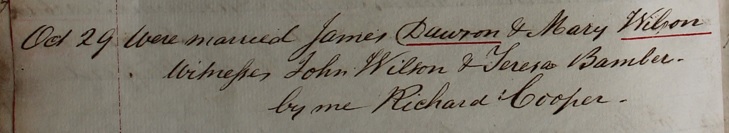 Oct 29 Were married James Dawson & Mary Wilson
Witnesses John Wilson & Teresa Bamber.
by me Richard Cooper.